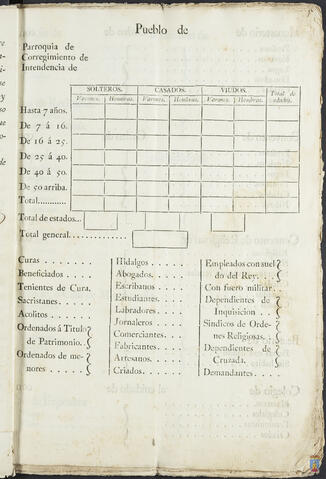 Pueblo de
Parroquia de
Corregimiento de
Intendencia de
SOLTEROS. CASADOS. VIUDOS. Total de edades.
Varones. Hembras. Varones. Hembras. Varones. Hembras.
Hasta 7 años.
De 7 á 16.
De 16 á 25.
De 25 á 40.
De 40 á 50.
De 50 arriba.
Total
Total de estados...
Total general
Curas
Beneficiados
Tenientes de Cura.
Sacristanes
Acolitos
Ordenados á Titulo
de Patrimonio.
Ordenados de me-
nores
Hidalgos
Abogados.
Escribanos
Estudiantes.
Labradores
Jornaleros
Comerciantes
Fabricantes
Artesanos.
Criados
Empleados con suel-
do del Rey.
Con fuero militar.
Dependientes de
Inquisicion
Sindicos de Orde-
nes Religiosas.
Dependientes de
Cruzada.
Demandantes